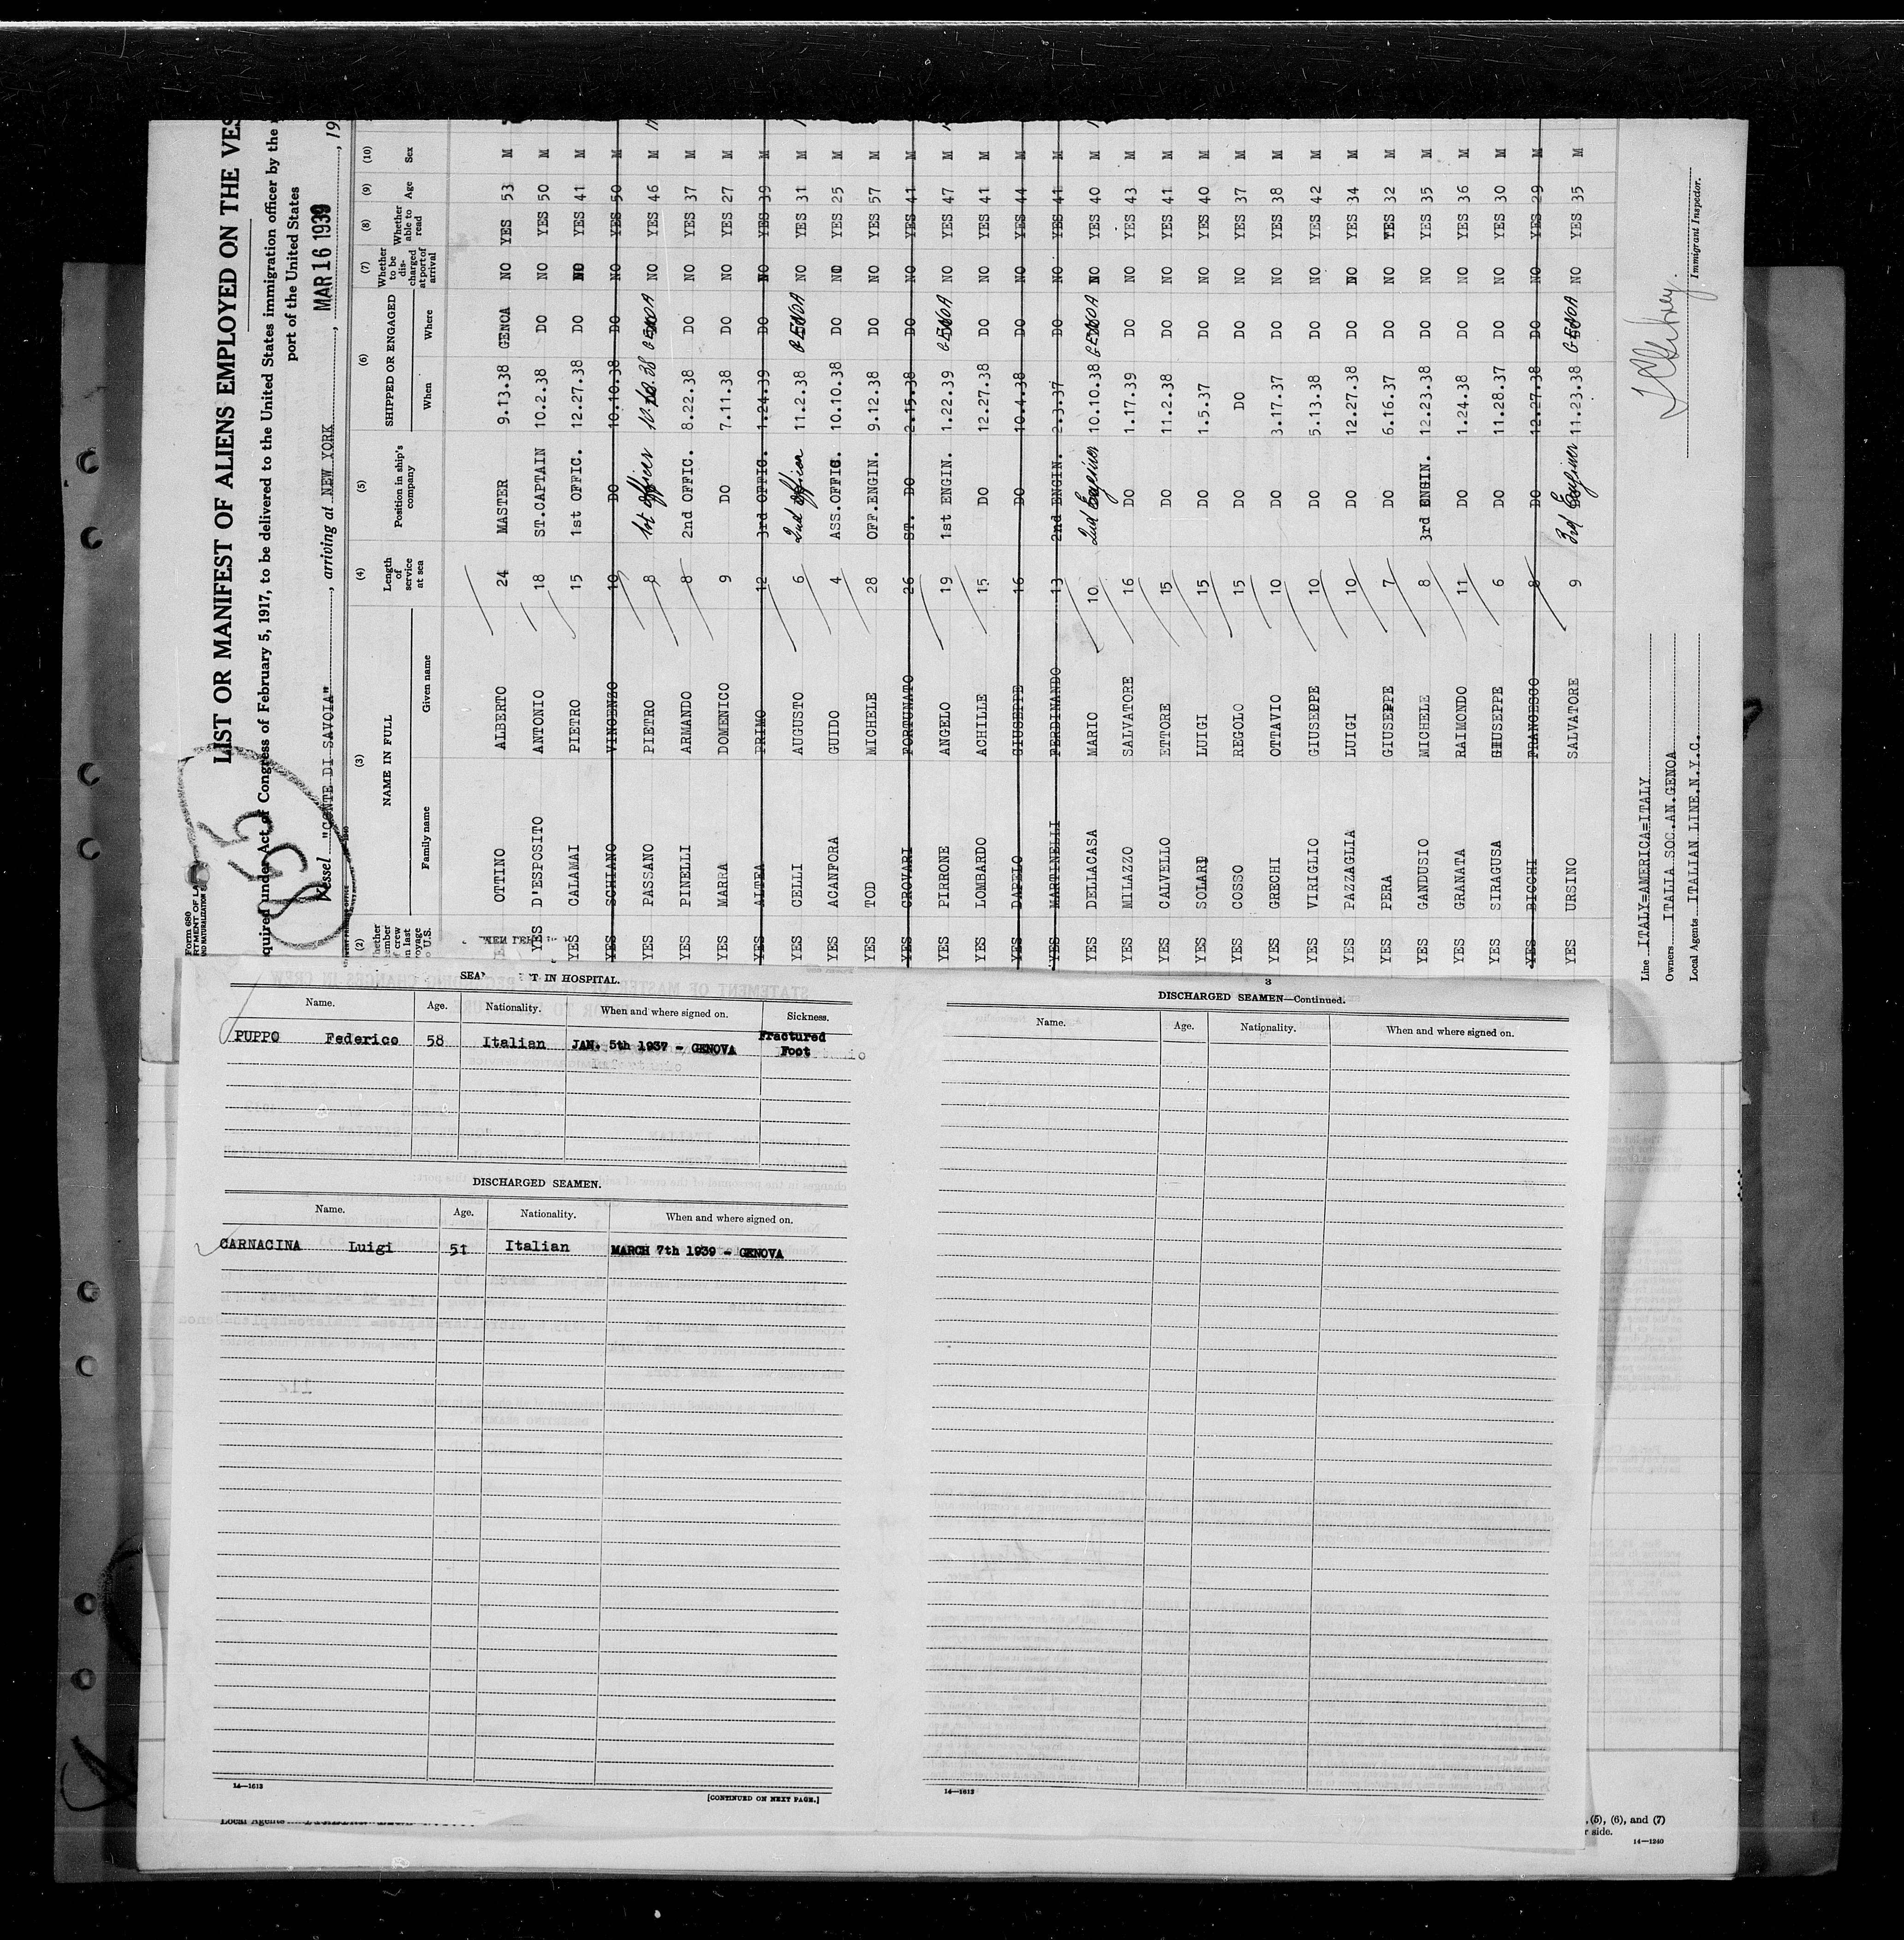 LIST OR MANIFEST OF ALIENS EMPLOYED ON THE VES
quired under Act of Congress of February 5, 1917, to be delivered to the United States immigration officer by the
port of the United States
Vessel "CONTE DI SAVOIA", arriving at NEW YORK, MAR 16 1939, 19
Form 680
(2) (3) (4) (5) (6) (7) (8) (9) (10)
NAME IN FULL Length of service at sea Position in ship's company SHIPPED OR ENGAGED Whether to be discharged at port of arrival Whether able to read Age Sex
Family name Given name When Where
OTTINO ALBERTO 24 MASTER 9.13.38 GENOA NO YES 53 M
YES D'ESPOSITO ANTONIO 18 ST.CAPTAIN 10.2.38 DO NO YES 50 M
YES CALAMAI PIETRO 15 1st OFFIC. 12.27.38 DO NO YES 41 M
YES SCHIANO VINCENZO 10 DO 10.10.38 DO NO YES 50 M
YES PASSANO PIETRO 8 1st Officer GENOA NO YES 46 M
YES PINELLI ARMANDO 8 2nd OFFIC. 8.22.38 DO NO YES 37 M
YES MARRA DOMENICO 9 DO 7.11.38 DO NO YES 27 M
YES ALTEA PRIMO 12 3rd OFFIC. 1.24.39 DO NO YES 39 M
YES CELLI AUGUSTO 6 2nd Officer 11.2.38 GENOA NO YES 31 M
YES ACANFORA GUIDO 4 ASS.OFFIC. 10.10.38 DO NO YES 25 M
YES TOD MICHELE 28 OFF.ENGIN. 9.12.38 DO NO YES 57 M
YES CROVARI FORTUNATO 26 ST. DO 2.15.38 DO NO YES 41 M
YES PIRRONE ANGELO 19 1st ENGIN. 1.22.39 GENOA NO YES 47 M
YES LOMBARDO ACHILLE 15 DO 12.27.38 DO NO YES 41 M
YES DAPELO GIUSEPPE 16 DO 10.4.38 DO NO YES 44 M
YES MARTINELLI FERDINANDO 13 2nd ENGIN. 2.3.37 DO NO YES 41 M
YES DELLACASA MARIO 10 2nd Engineer 10.10.38 GENOA NO YES 40 M
YES MILAZZO SALVATORE 16 DO 1.17.39 DO NO YES 43 M
YES CALVELLO ETTORE 15 DO 11.2.38 DO NO YES 41 M
YES SOLARI LUIGI 15 DO 1.5.37 DO NO YES 40 M
YES COSSO REGOLO 15 DO DO DO NO YES 37 M
YES GRECHI OTTAVIO 10 DO 3.17.37 DO NO YES 38 M
YES VIRIGLIO GIUSEPPE 10 DO 5.13.38 DO NO YES 42 M
YES PAZZAGLIA LUIGI 10 DO 12.27.38 DO NO YES 34 M
YES PERA GIUSEPPE 7 DO 6.16.37 DO NO YES 32 M
YES GANDUSIO MICHELE 8 3rd ENGIN. 12.23.38 DO NO YES 35 M
YES GRANATA RAIMONDO 11 DO 1.24.38 DO NO YES 36 M
YES SIRAGUSA GIUSEPPE 6 DO 11.28.37 DO NO YES 30 M
YES BICCHI FRANCESCO 8 DO 12.27.38 DO NO YES 29 M
YES URSINO SALVATORE 9 3rd Engineer 11.23.38 GENOA NO YES 35 M
Line ITALY=AMERICA=ITALY
Owners ITALIA SOC.AN.GENOA
Local Agents ITALIAN LINE.N.Y.C.
Immigrant Inspector.
T IN HOSPITAL.
Name. Age. Nationality. When and where signed on. Sickness.
PUPPO Federico 58 Italian JAN. 5th 1937 - GENOVA Fractured Foot
DISCHARGED SEAMEN.
Name. Age. Nationality. When and where signed on.
CARNACINA Luigi 51 Italian MARCH 7th 1939 - GENOVA
14—1613
[CONTINUED ON NEXT PAGE.]
3
DISCHARGED SEAMEN—Continued.
Name. Age. Nationality. When and where signed on.
14—1613
Local Agents
, (5), (6), and (7)
r side.
14—1240